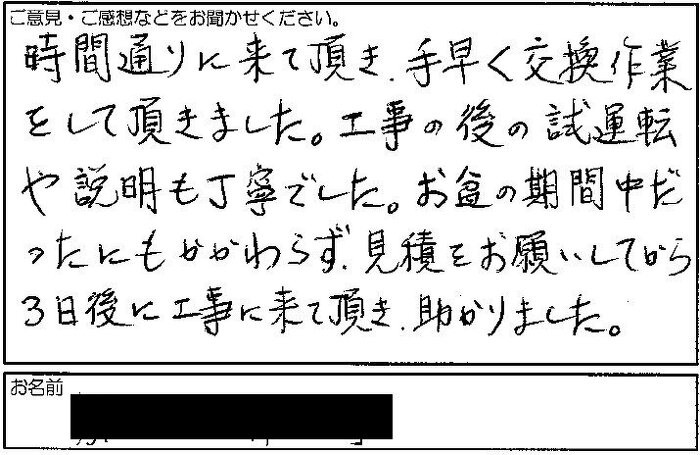 ご意見・ご感想などをお聞かせください。
時間通りに来て頂き、手早く交換作業
をして頂きました。工事の後の試運転
や説明も丁寧でした。お盆の期間中だ
ったにもかかわらず、見積をお願いしてから
3日後に工事に来て頂き、助かりました。
お名前